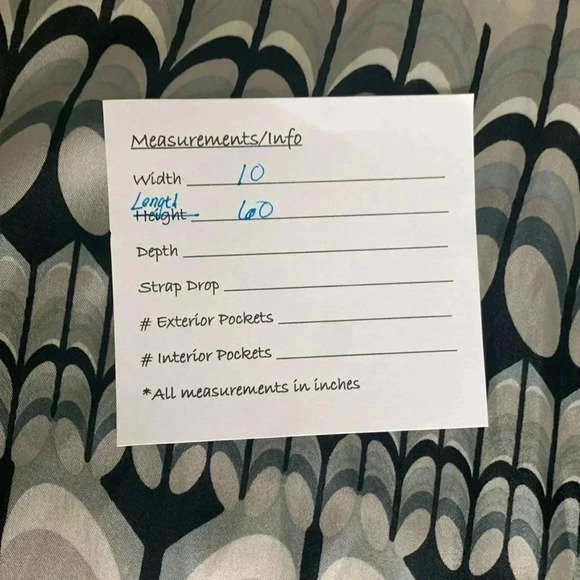 Measurements/Info
Width 10
Length
Height 60
Depth
Strap Drop
# Exterior Pockets
# Interior Pockets
*All measurements in inches